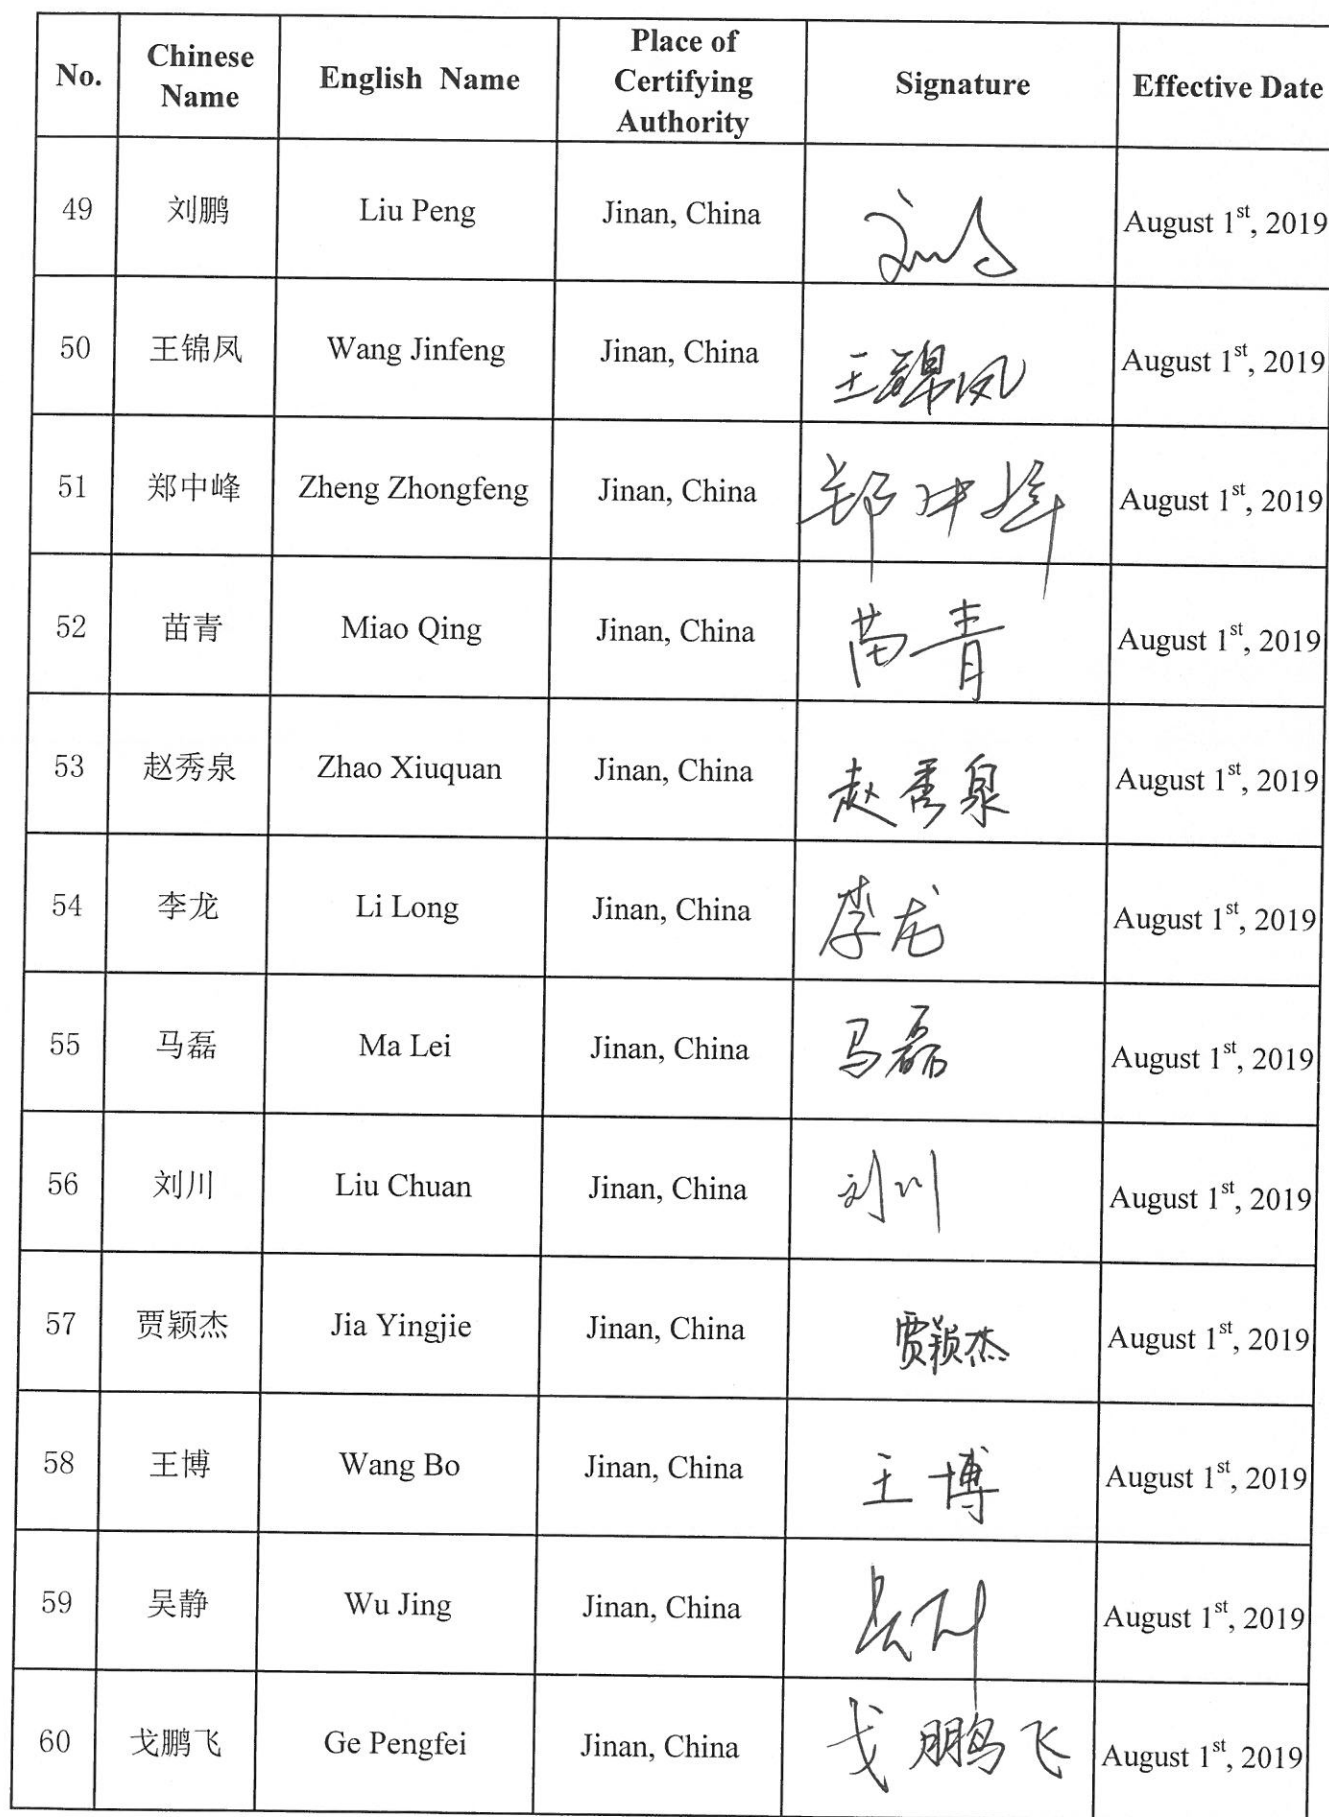 No. Chinese Name English Name Place of Certifying Authority Signature Effective Date
49 刘鹏 Liu Peng Jinan, China 刘鹏 August 1st, 2019
50 王锦凤 Wang Jinfeng Jinan, China 王锦凤 August 1st, 2019
51 郑中峰 Zheng Zhongfeng Jinan, China 郑中峰 August 1st, 2019
52 苗青 Miao Qing Jinan, China 苗青 August 1st, 2019
53 赵秀泉 Zhao Xiuquan Jinan, China 赵秀泉 August 1st, 2019
54 李龙 Li Long Jinan, China 李龙 August 1st, 2019
55 马磊 Ma Lei Jinan, China 马磊 August 1st, 2019
56 刘川 Liu Chuan Jinan, China 刘川 August 1st, 2019
57 贾颖杰 Jia Yingjie Jinan, China 贾颖杰 August 1st, 2019
58 王博 Wang Bo Jinan, China 王博 August 1st, 2019
59 吴静 Wu Jing Jinan, China August 1st, 2019
60 戈鹏飞 Ge Pengfei Jinan, China 戈鹏飞 August 1st, 2019